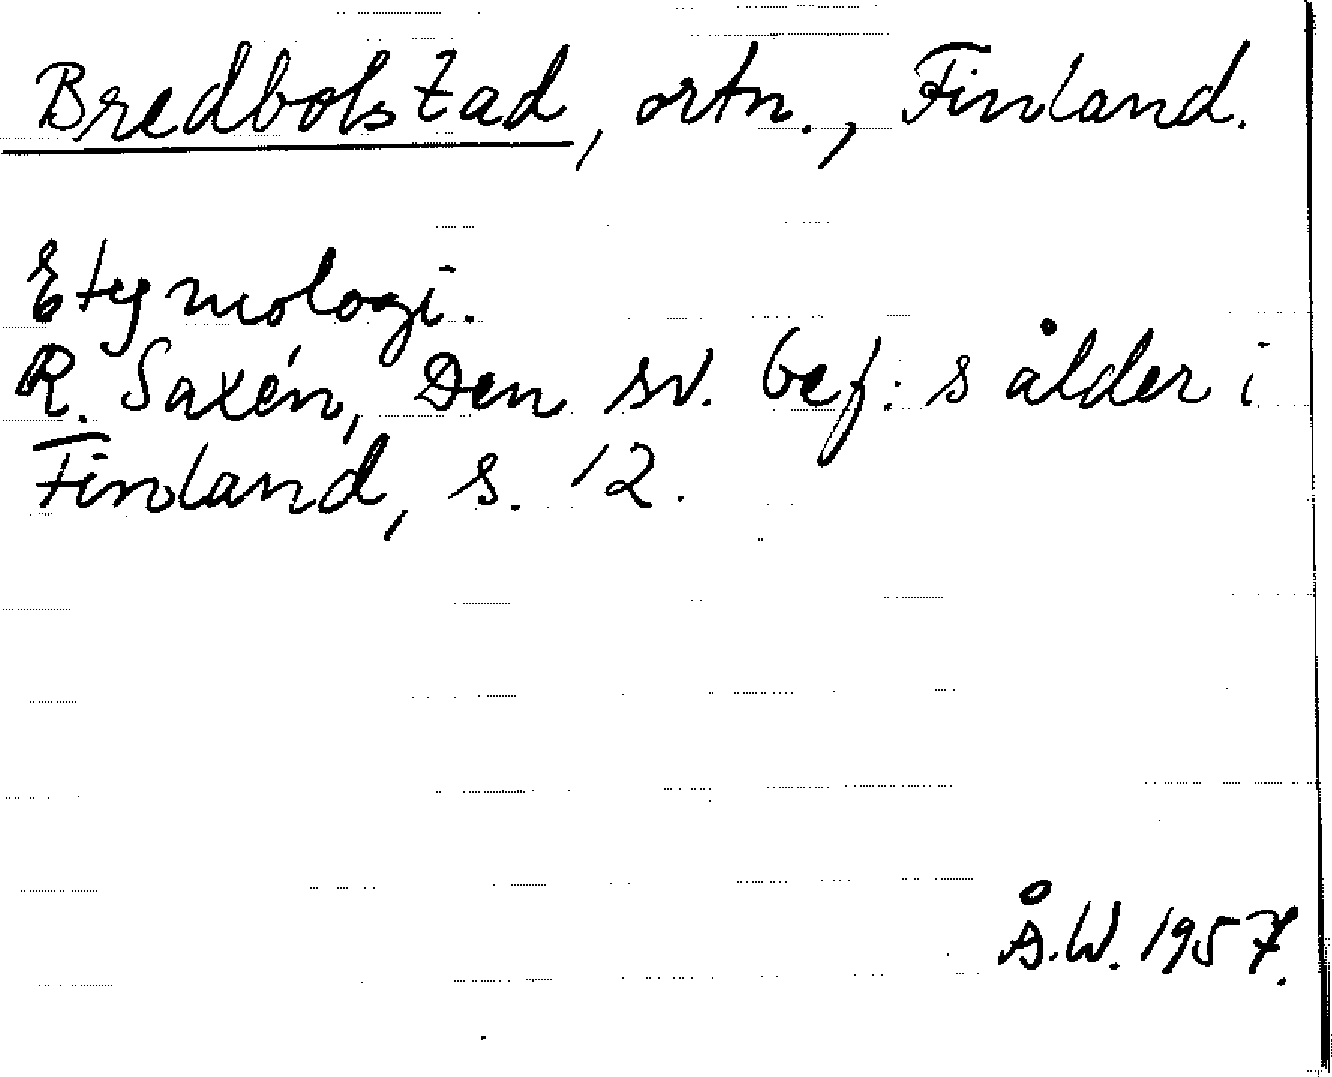 Bredbolstad, ortn., Finland.
Etymologi.
R. Saxén, Den sv. bef:s ålder i
Finland, s. 12.
Å.W. 1957.